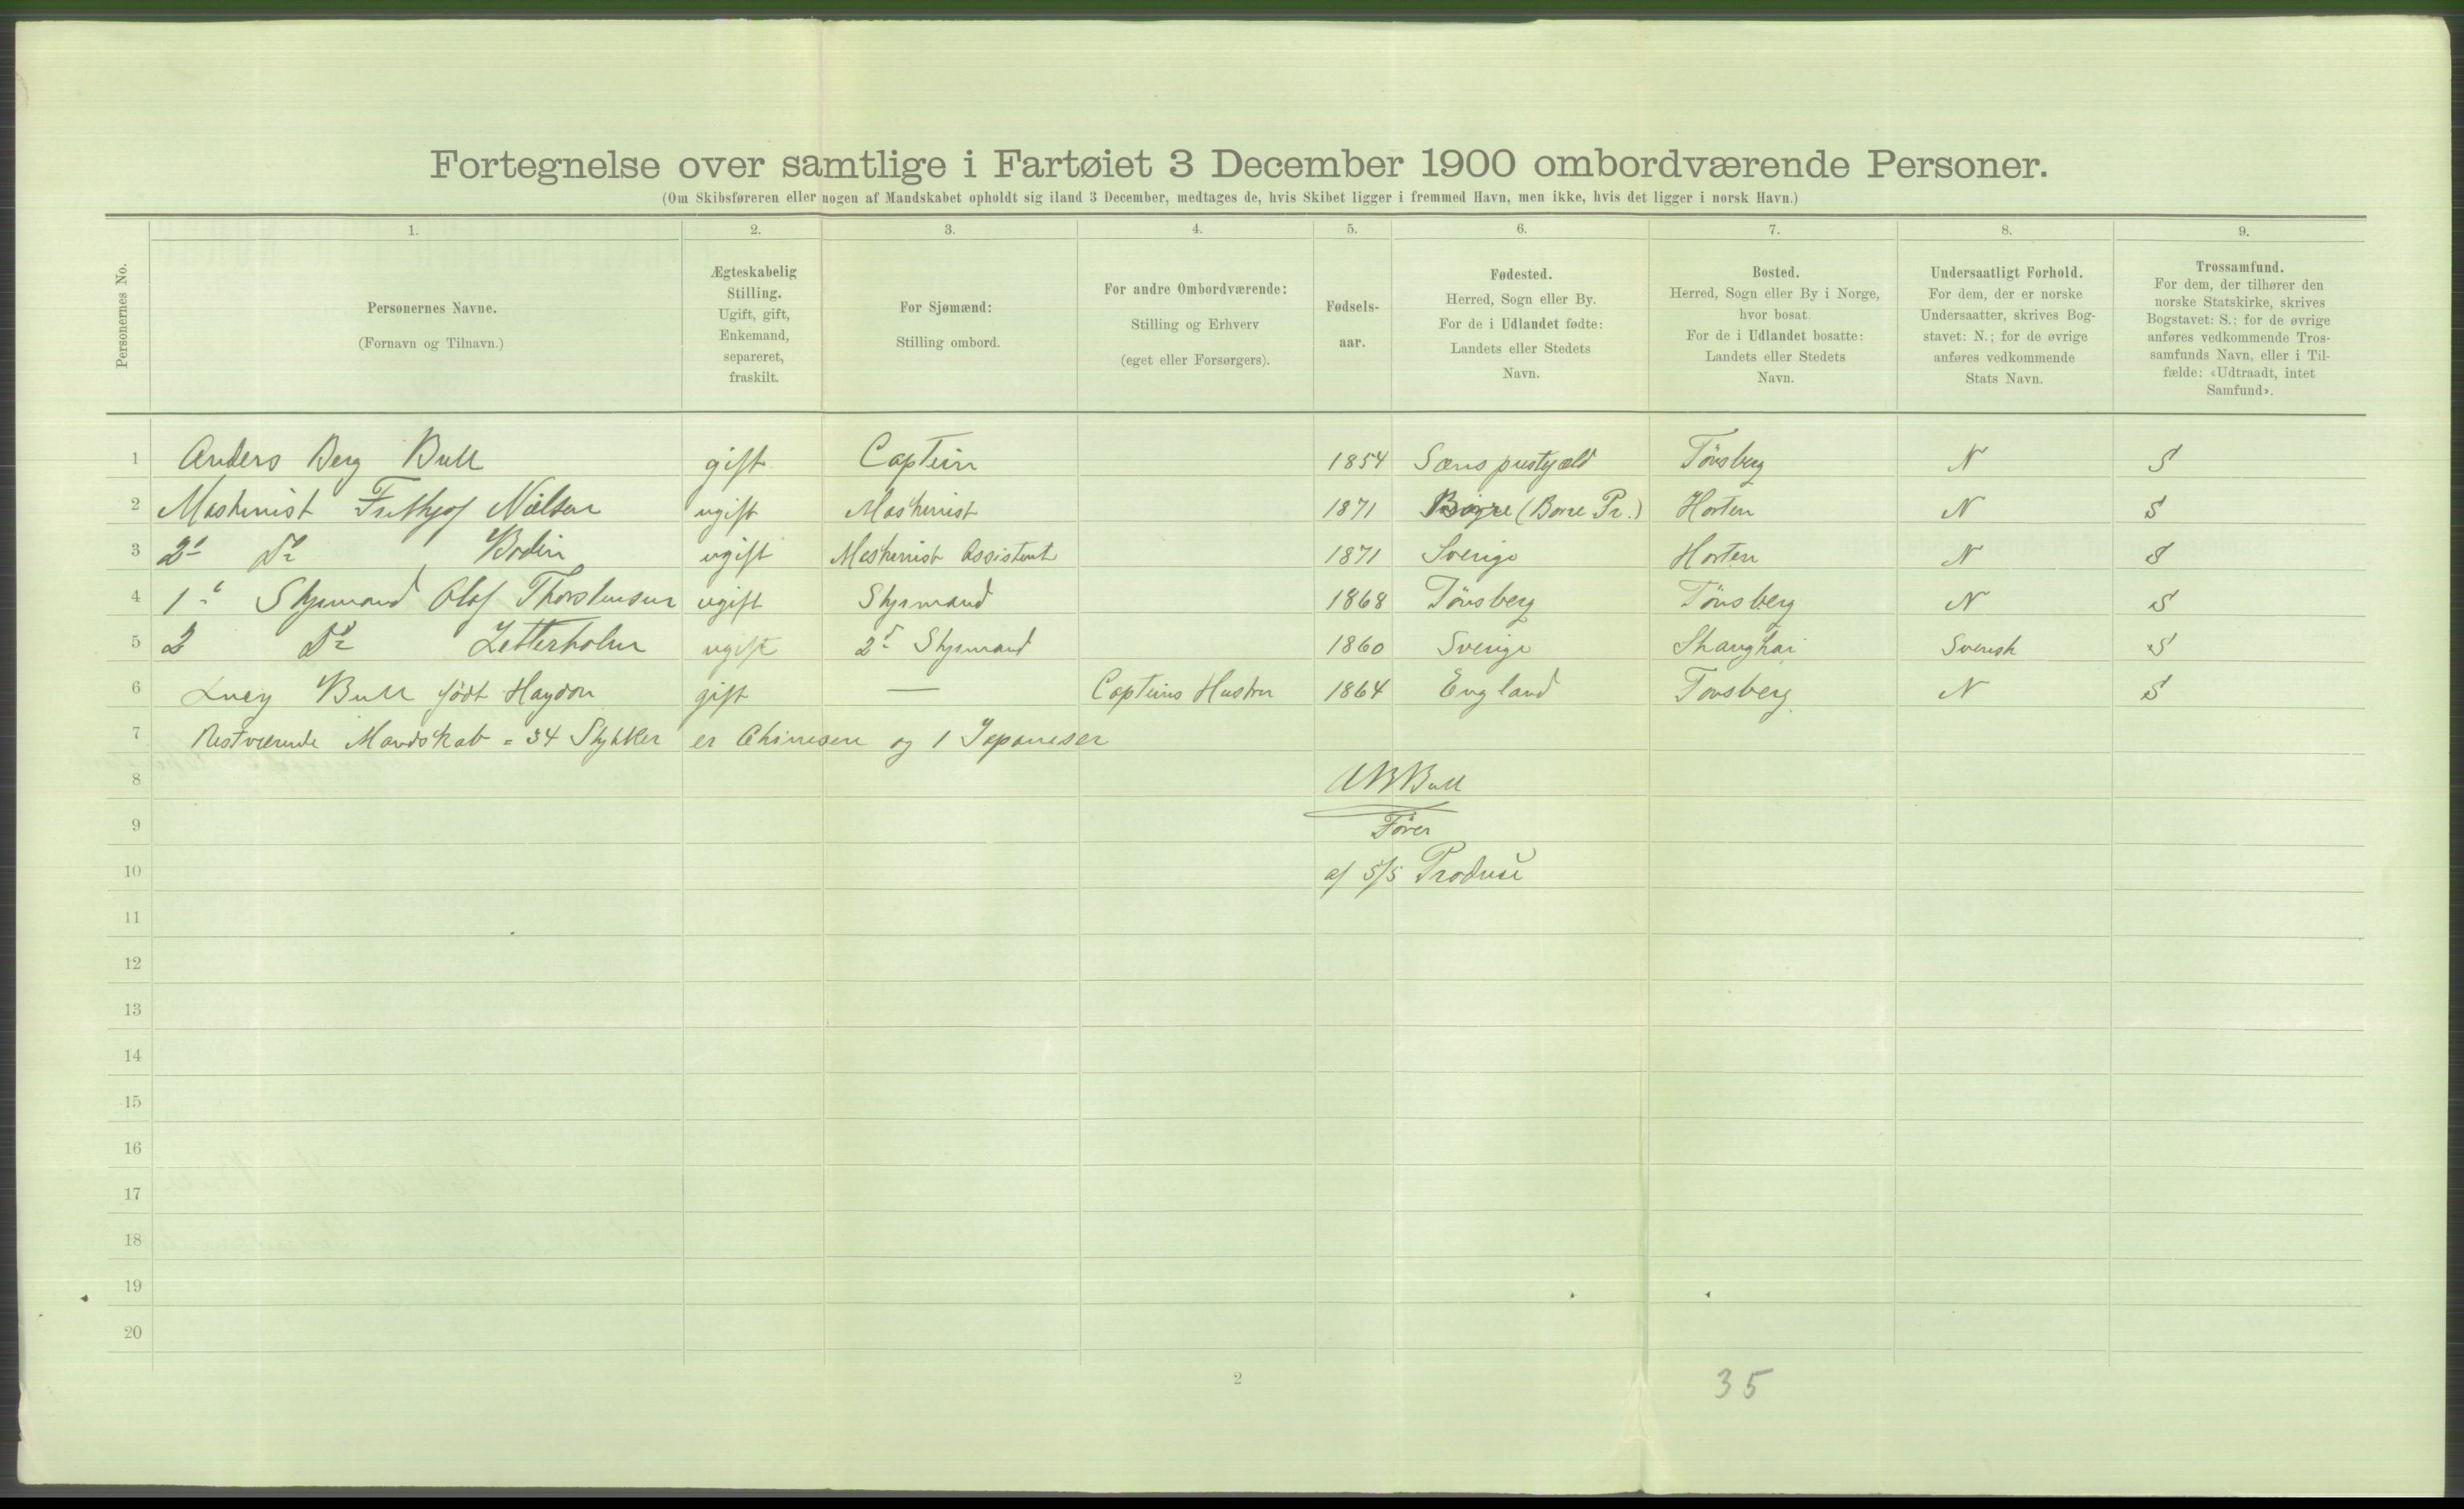 Fortegnelse over samtlige i Fartøiet 3 December 1900 ombordværende Personer.
(Om Skibsføreren eller nogen af Mandskabet opholdt sig iland 3 December, medtages de, hvis Skibet ligger i fremmed Havn, men ikke, hvis det ligger i norsk Havn.)
Personernes No.
1. 2. 3. 4. 5. 6. 7. 8. 9.
Personernes Navne.
(Fornavn og Tilnavn.)
Ægteskabelig
Stilling.
Ugift, gift,
Enkemand,
separeret,
fraskilt.
For Sjømænd:
Stilling ombord.
For andre Ombordværende:
Stilling og Erhverv
(eget eller Forsørgers).
Fødsels-
aar.
Fødested.
Herred, Sogn eller By.
For de i Udlandet fødte:
Landets eller Stedets
Navn.
Bosted.
Herred, Sogn eller By i Norge,
hvor bosat.
For de i Udlandet bosatte:
Landets eller Stedets
Navn.
Undersaatligt Forhold.
For dem, der er norske
Undersaatter, skrives Bog-
stavet: N.; for de øvrige
anføres vedkommende
Stats Navn.
Trossamfund.
For dem, der tilhører den
norske Statskirke, skrives
Bogstavet: S.; for de øvrige
anføres vedkommende Tros-
samfunds Navn, eller i Til-
fælde: «Udtraadt, intet
Samfund».
1 Anders Berg Bull gift Captein 1854 Sems prestgjæld Tönsberg N S
2 Maskinist Frithjof Nielsen ugift Maskinist 1871 Borre (Borre Pr.) Horten N S
3 2d Do Bodin ugift Maskinist Assistent 1871 Sverige Horten N S
4 1e Styrmand Olaf Thorstensen ugift Styrmand 1868 Tönsberg Tönsberg N S
5 2 Do Zetterholm ugift 2d Styrmand 1860 Sverige Shanghai Svensk S
6 Lucy Bull födt Haydon gift — Capteins Hustru 1864 England Tonsberg N S
7 Restværende Mandskab = 34 Stykker er Chinesere og 1 Japaneser
8 ABBull
9 Förer
10 af S/S Produce
11
12
13
14
15
16
17
18
19
20
2
35